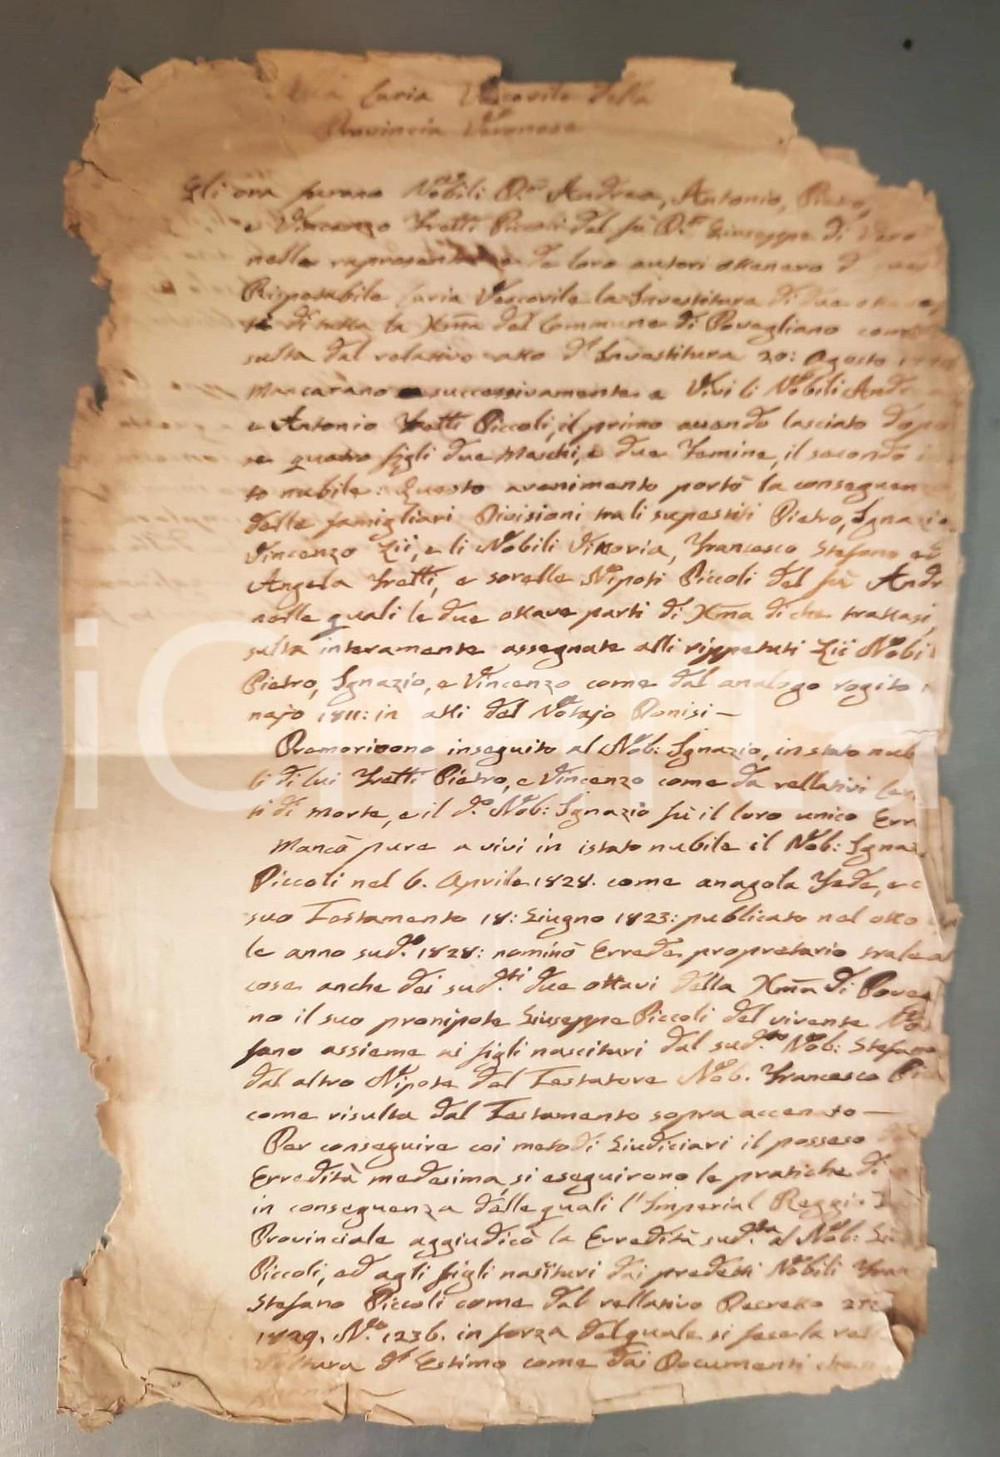 Alla Curia Vescovile della
Provincia Veronese
Gli ora furono Nobili D.n Andrea, Antonio, Pietro,
e Vincenzo Fretti Piccoli del fù D.r Giuseppe di Vero
nelle da loro autori ottenero d
Rispetabile Curia Vescovile la Investitura di due ottave
ti di tutta la Xma del Commune di Povegliano come
sulta dal relativo atto d'Investitura 20: Agosto
Mancarano successivamente a Vivi li Nobili Andr
e Antonio Fretti Piccoli, il primo avendo lasciato dopo
se quatro figli due Maschi, e due Femine, il secondo i
to nubile: Questo avenimento portò la conseguen
delle famigliari Divisioni tra li supestiti Pietro, Ignazio
Vincenzo Zii, e li Nobili Vittoria, Francesco Stefano ed
Angela Fretti, e sorelle Nipoti Piccoli del fù Andr
nelle quali le due ottave parti di Xma di che trattasi,
sulta interamente assegnate alli rippetuti Zii Nobi
Pietro, Ignazio, e Vincenzo come dal analogo rogito
najo 1811: in atti del Notajo Donisi —
Premorirono inseguito al Nob: Ignazio, in stato nub
li di lui Fretti Pietro, e Vincenzo come da rellativi Cer
ti di Morte, e il d.o Nob: Ignazio fù il loro unico Erre
Mancò pure a vivi in istato nubile il Nob: Ignaz
Piccoli nel 6. Aprile 1828. come anagola Fede, e c
suo Testamento 18: Giugno 1823: publicato nel otto
le anno sud.o 1828: nominò Errede proprietario trale al
cose anche dei sud.ti due ottavi della Xma di Poveg
no il suo pronipote Giuseppe Piccoli del vivente
fano assieme ai figli nascituri dal sud.to Nob: Stefano
dal altro Nipote del Testatore Nob. Francesco Picc
come risulta dal Testamento sopra accenato —
Per conseguire coi metodi Giudiciari il possesso
Erredità medesima, si eseguirono le pratiche di
in conseguenza delle quali l'Imperial Reggio
Provinciale aggiudicò la Erredità sud.ta al Nob: Giu
Piccoli, ed agli figli nasituri dai predetti Nobili Fran
Stefano Piccoli come dal rellativo Decretto
1829. N.o 1236. in forza del quale si fece la
d'Estimo come dai Documenti che
iCharta